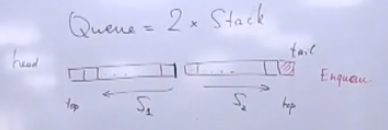 Queue = 2 x Stack
head tail
... ...
Enqueu
top S1 S2 top